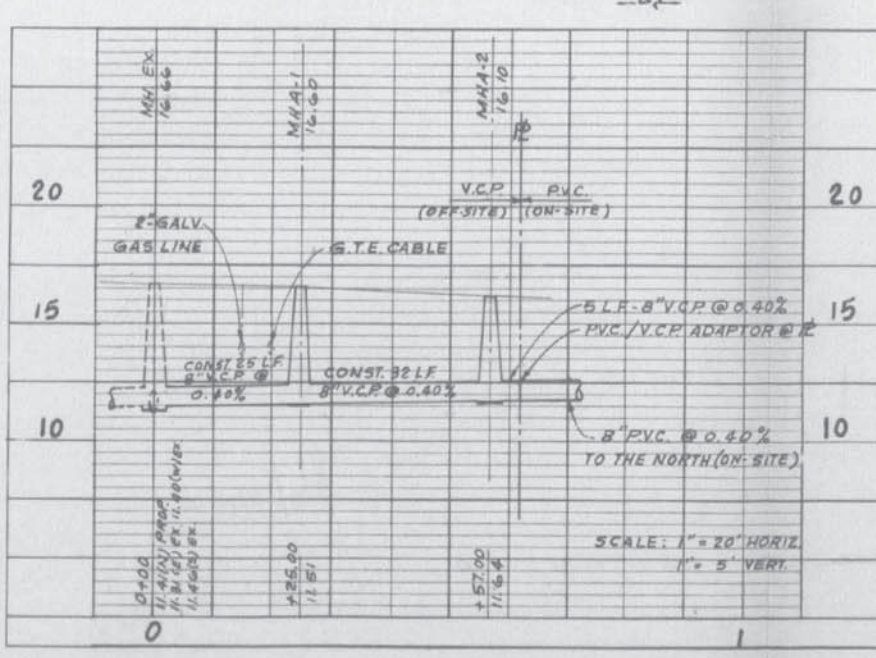 MH. EX.
16.66
MHA-1
16.60
MHA-2
16.10
20
20
V.C.P.
P.V.C.
(OFF-SITE)
(ON-SITE)
2"-GALV.
GAS LINE
G.T.E. CABLE
15
15
5 L.F.-8" V.C.P. @ 0.40%
P.V.C./V.C.P. ADAPTOR @ PL
CONST. 25 L.F.
8" V.C.P. @
0.40%
CONST. 32 L.F.
8" V.C.P. @ 0.40%
10
10
8" P.V.C. @ 0.40%
TO THE NORTH (ON-SITE)
SCALE: 1" = 20' HORIZ.
1" = 5' VERT.
0+00
11.41(N) PROP.
11.31(E) EX. 11.40(W) EX.
11.46(S) EX.
+25.00
11.51
+57.00
11.64
0
1